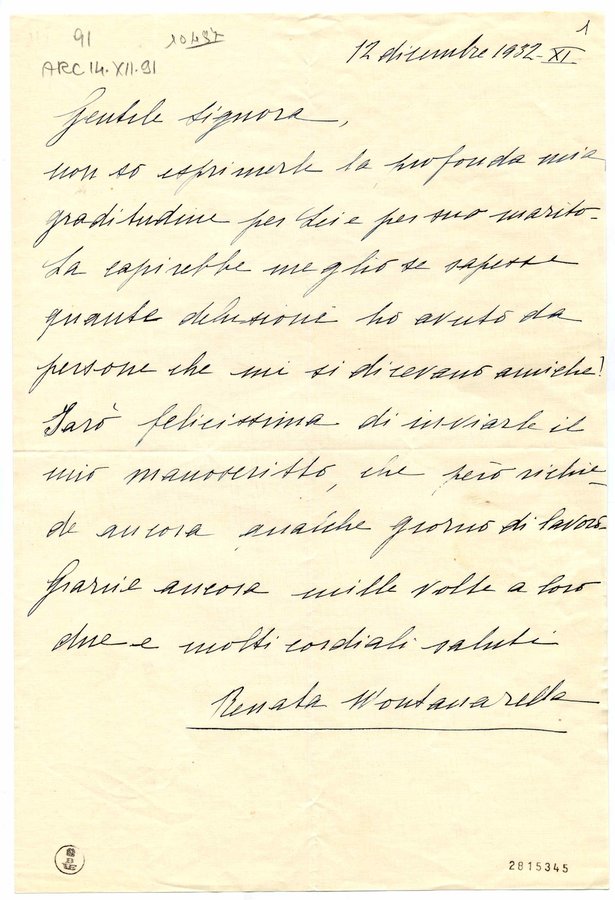 91
10437
1
ARC 14. XII. 91
12 dicembre 1932-XI
Gentile Signora,
non so esprimerle la profonda mia
gratitudine per Lei e per suo marito.
La capirebbe meglio se sapesse
quante delusioni ho avuto da
persone che mi si dicevano amiche!
Sarò felicissima di inviarle il
mio manoscritto, che però richie-
de ancora qualche giorno di lavoro.
Grazie ancora mille volte a loro
due e molti cordiali saluti
Renata Montanarella
2815345